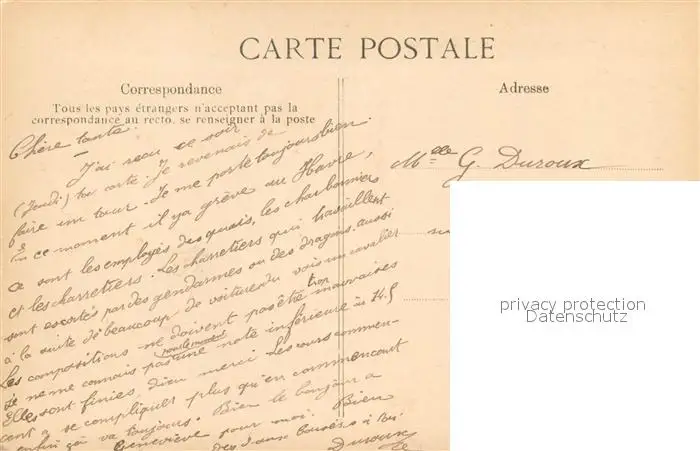 CARTE POSTALE
Correspondance
Tous les pays étrangers n'acceptant pas la
correspondance au recto, se renseigner à la poste
Adresse
Chère tante.
J'ai reçu ce soir
(Jeudi) ta carte. Je revenais de
faire un tour. Je me porte toujours bien.
En ce moment il y a grève au Havre,
ce sont les employés des quais, les charbonniers
et les charretiers. Les charretiers qui travaillent
sont escortés par des gendarmes ou des dragons, aussi
à la suite de beaucoup de voitures du vois un cavalier
Les compositions ne doivent pas être trop mauvaises
Je ne me connais pas pour le moment une note inférieure à 14.5
Elles sont finies, Dieu merci. Les cours commen-
cent à se compliquer plus qu'en commençant
enfin ça va toujours. Bien le bonjour à
Geneviève pour moi. Bien
des doux baisers à
Duroux
Melle G. Duroux
privacy protection
Datenschutz